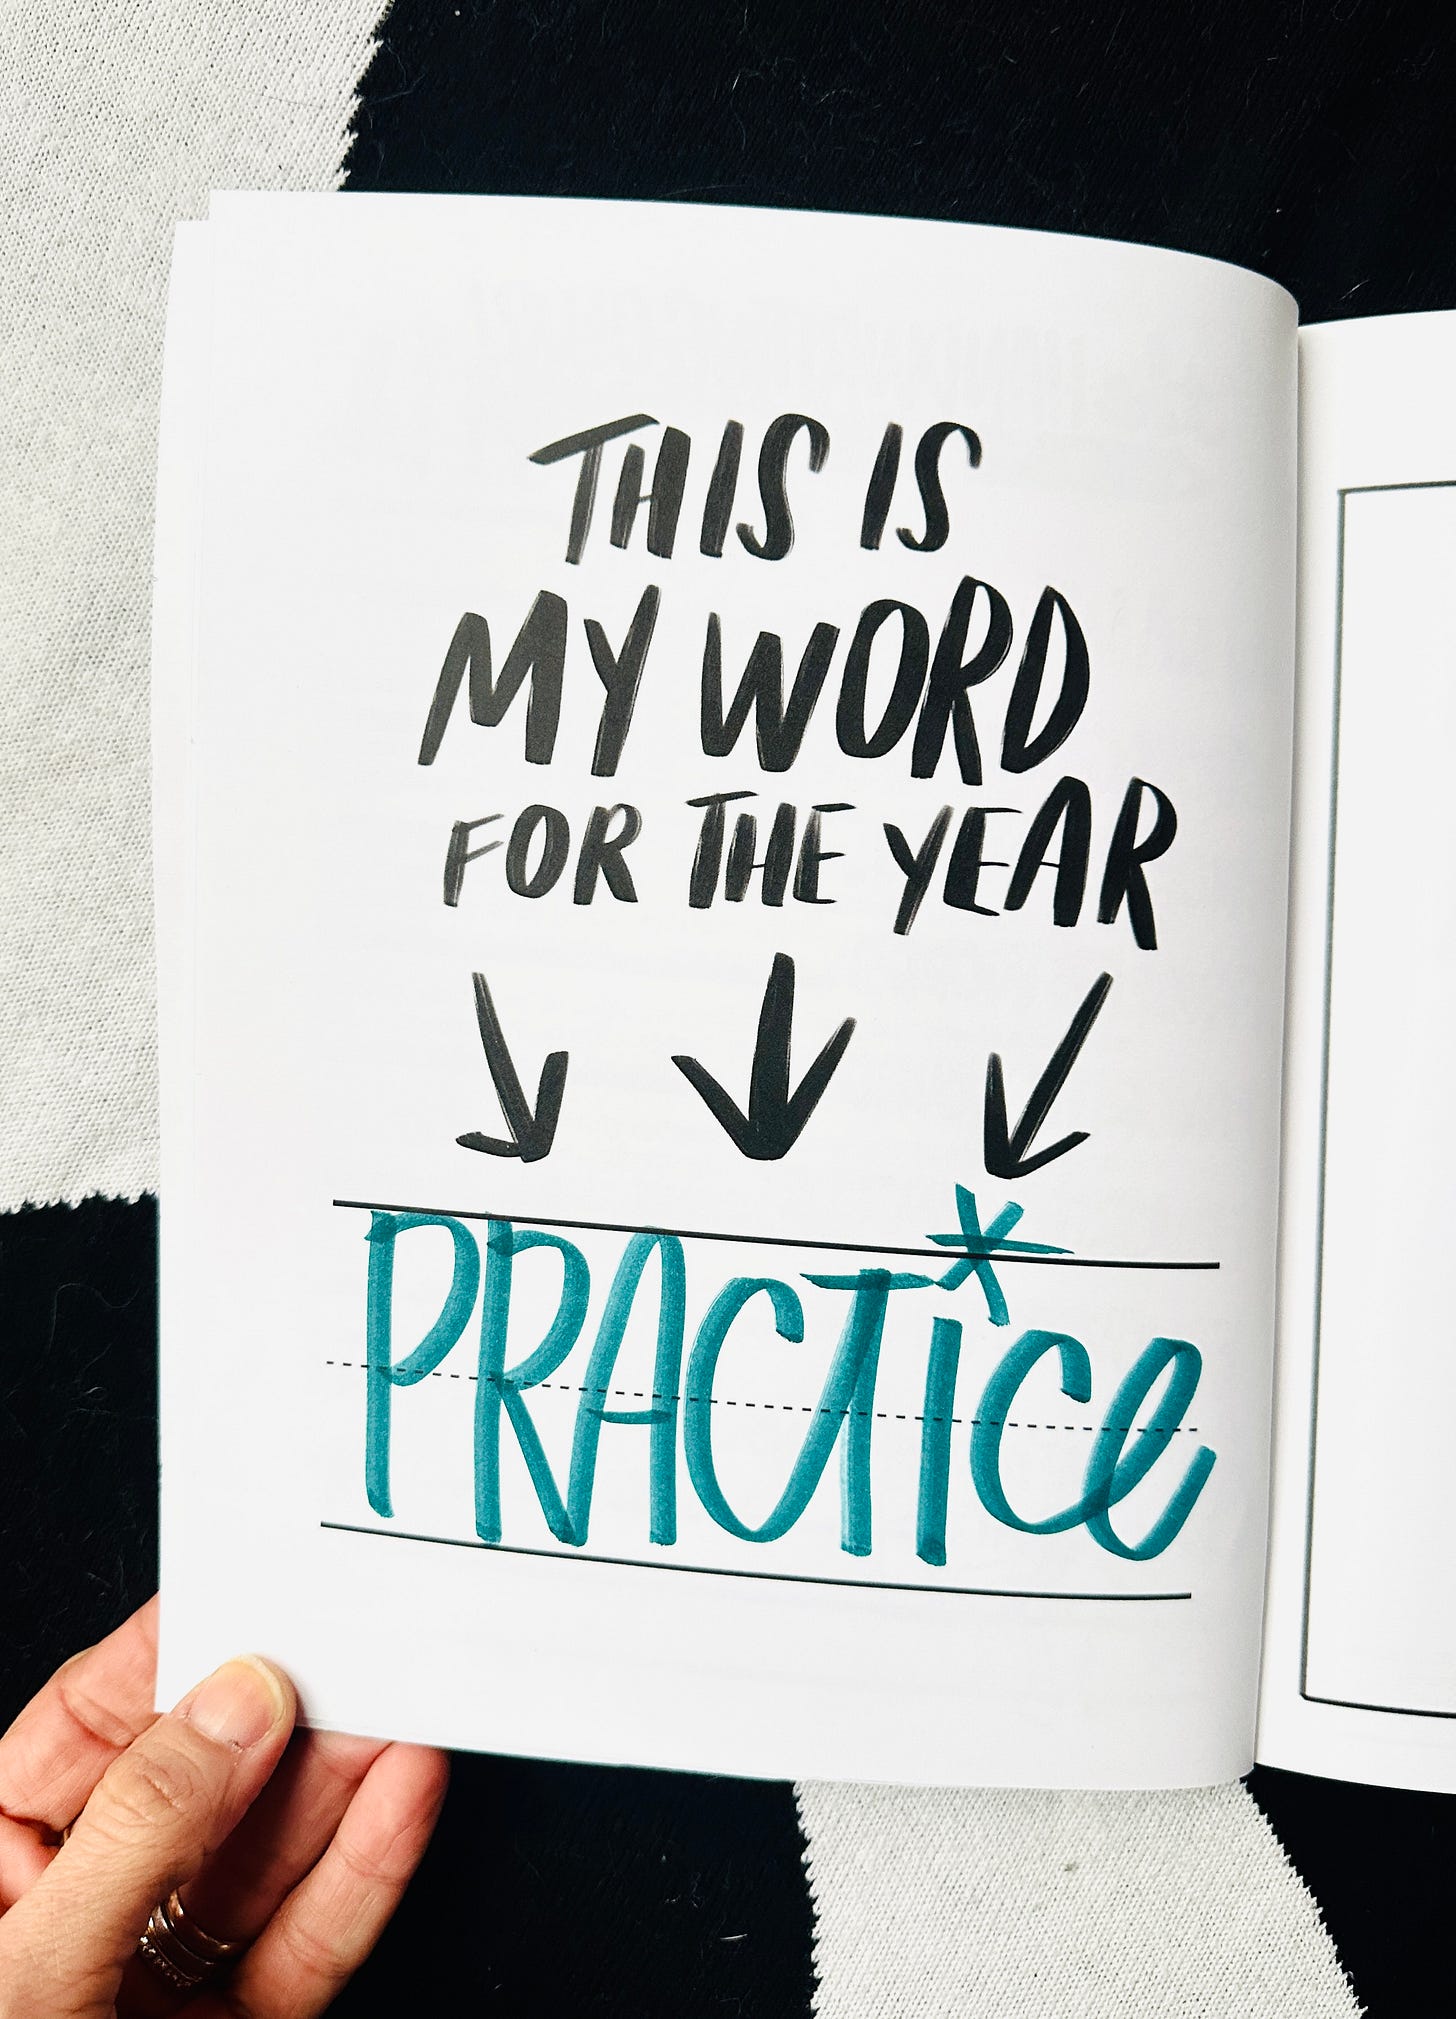 THIS IS
MY WORD
FOR THE YEAR
PRACTice